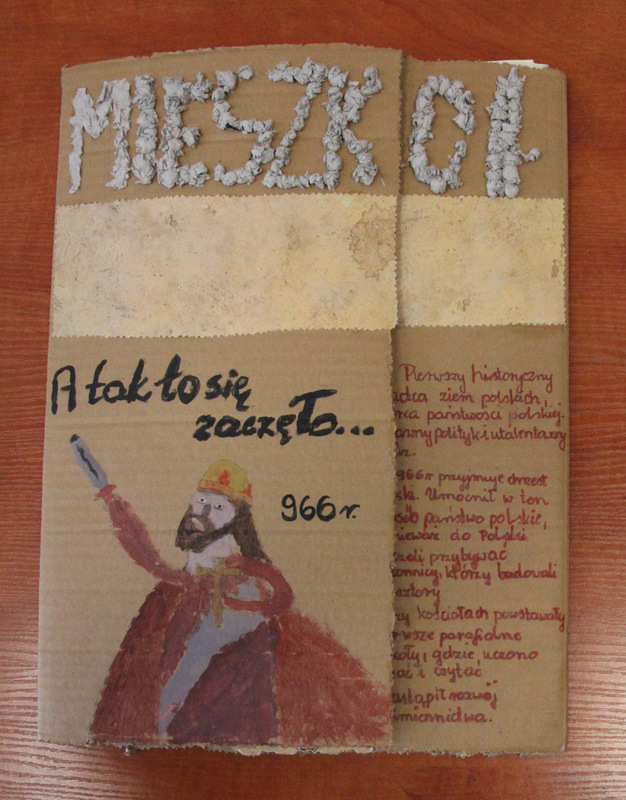 MIESZKO I
A tak to się
zaczęło...
966 r.
Pierwszy historyczny
adca ziem polskich,
rca państwości polskiej.
awny polityk i
966 r przyjmuje chrzest
ski. Umocnił w ten
sób państwo polskie,
nieważ do Polski
zeli przybywać
onnicy, którzy budowali
sztory
zy kościołach powstawały
rwsze parafialne
koły, gdzie uczono
ać i czytać
astąpił rozwój
iśmiennictwa.